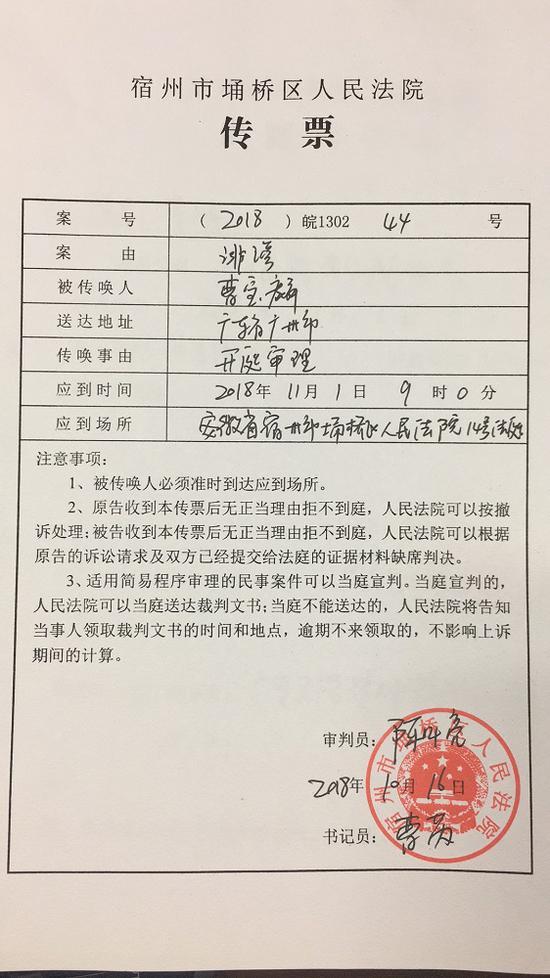 宿州市埇桥区人民法院
传 票
案 号 ( 2018 ) 皖1302 44 号
案 由 诽谤
被传唤人 曹宝麟
送达地址 广东省广州市
传唤事由 开庭审理
应到时间 2018年 11月 1 日 9 时 0 分
应到场所 安徽省宿州市埇桥区人民法院14号法庭
注意事项:
1、被传唤人必须准时到达应到场所。
2、原告收到本传票后无正当理由拒不到庭,人民法院可以按撤
诉处理;被告收到本传票后无正当理由拒不到庭,人民法院可以根据
原告的诉讼请求及双方已经提交给法庭的证据材料缺席判决。
3、适用简易程序审理的民事案件可以当庭宣判。当庭宣判的,
人民法院可以当庭送达裁判文书;当庭不能送达的,人民法院将告知
当事人领取裁判文书的时间和地点,逾期不来领取的,不影响上诉
期间的计算。
审判员:
2018年 10月 16日
书记员: 曹
宿州市埇桥区人民法院